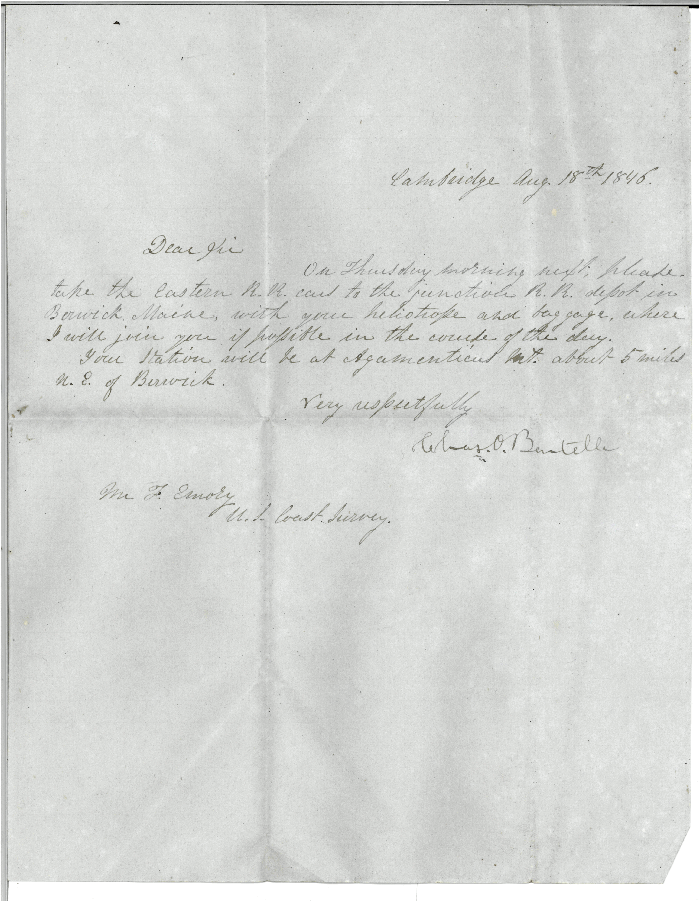 Cambridge Aug. 18th 1846.
Dear Sir
On Thursday morning next, please
take the Eastern R.R. cars to the junction R.R. depot in
Berwick, Maine, with your heliotrope and baggage, where
I will join you if possible in the course of the day.
Your Station will be at Agamenticus Mt. about 5 miles
N. E. of Berwick.
Very respectfully
Chas. O. Boutelle
Mr F. Emory
U.S. Coast Survey.